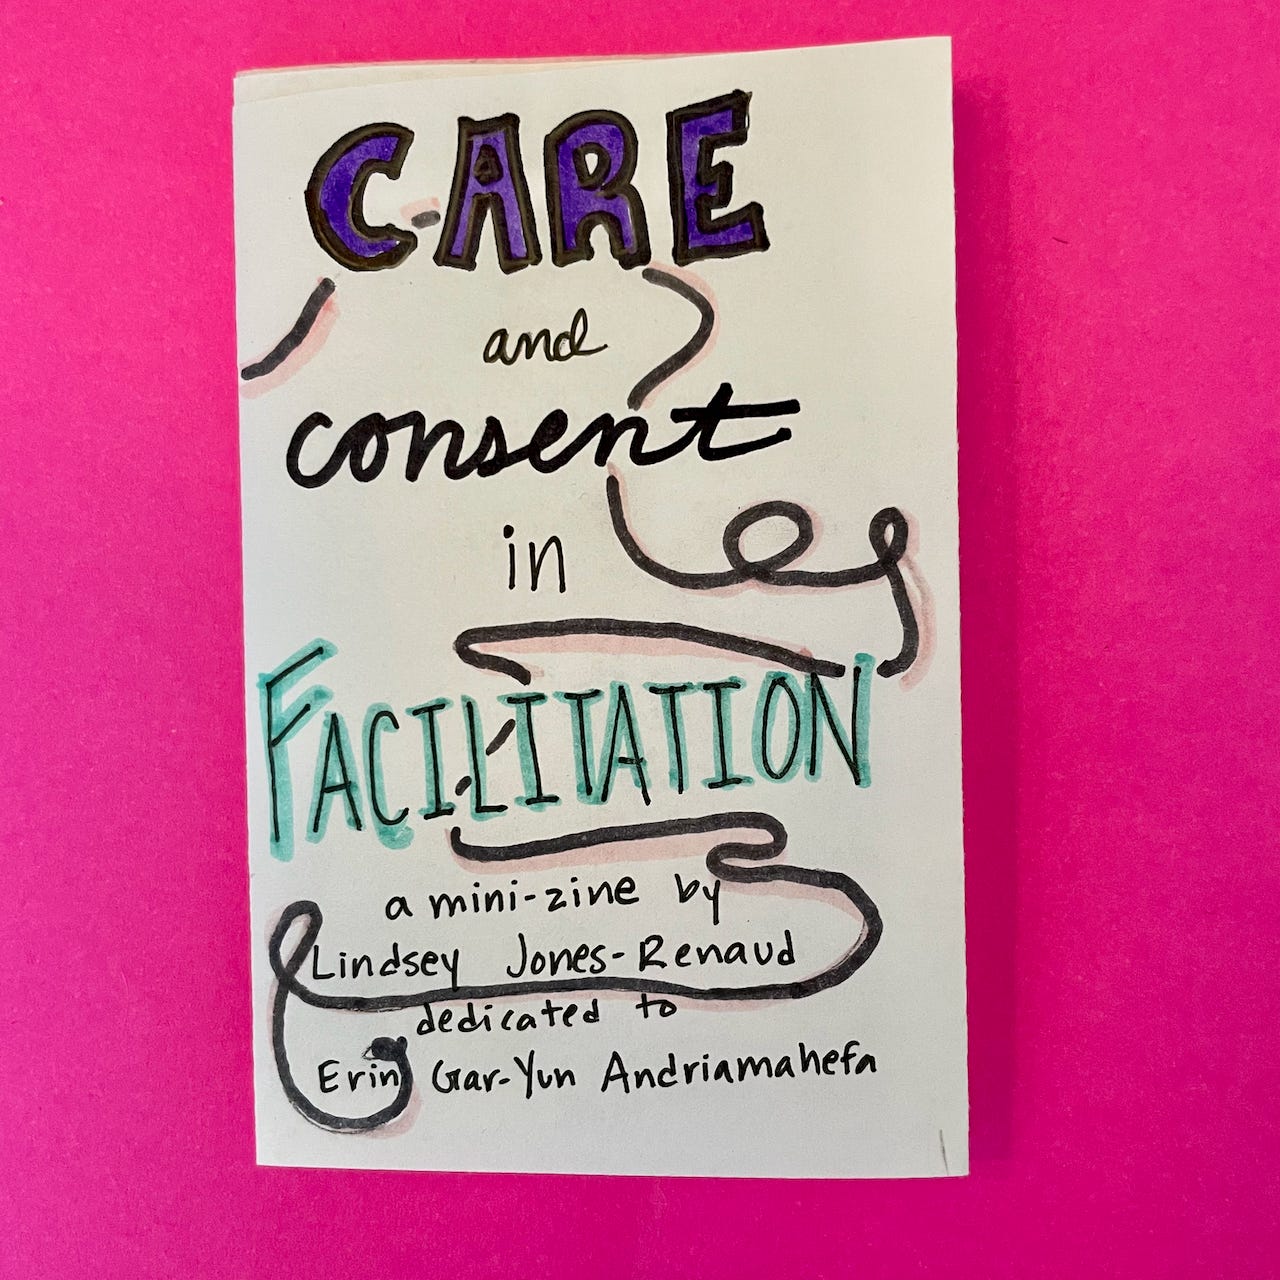 CARE
and
consent
in
FACILITATION
a mini-zine by
Lindsey Jones-Renaud
dedicated to
Erin Gar-Yun Andriamahefa